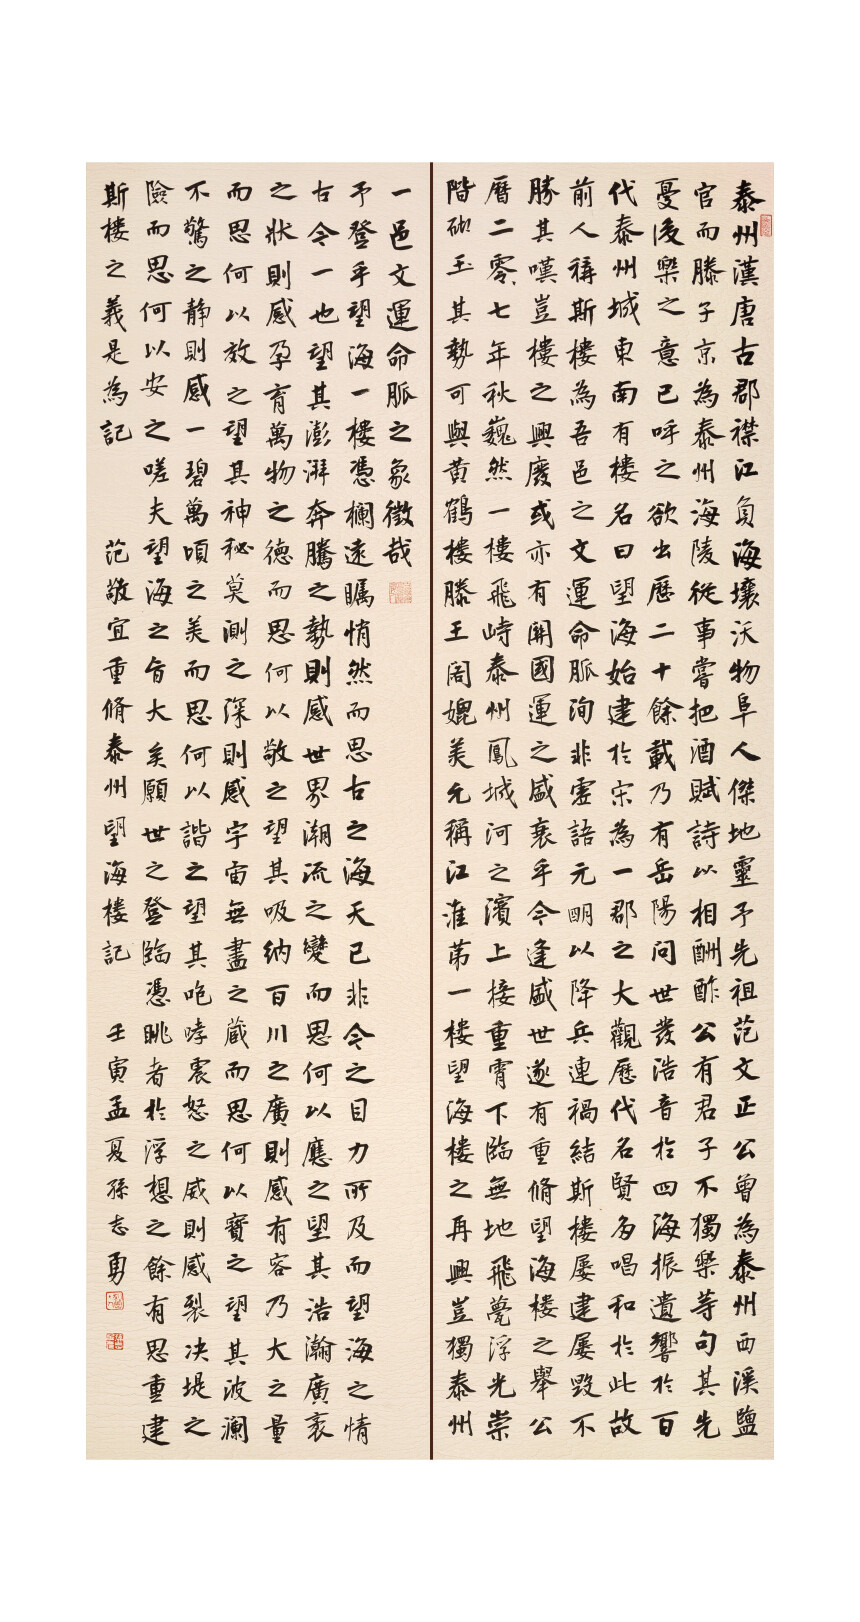 泰州漢唐古郡襟江負海壤沃物阜人傑地靈予先祖范文正公曾為泰州西溪鹽
官而滕子京為泰州海陵從事嘗把酒賦詩以相酬酢公有君子不獨樂等句其先
憂後樂之意已呼之欲出歷二十餘載乃有岳陽問世發浩音於四海振遺響於百
代泰州城東南有樓名曰望海始建於宋為一郡之大觀歷代名賢多唱和於此故
前人稱斯樓為吾邑之文運命脈洵非虛語元明以降兵連禍結斯樓屡建屡毀不
勝其嘆豈樓之興廢或亦有關國運之盛衰乎今逢盛世遂有重脩望海樓之舉公
曆二零零七年秋巍然一樓飛峙泰州鳳城河之濱上接重霄下臨無地飛甍浮光崇
階砌玉其勢可與黄鶴樓滕王阁媲美允稱江淮苐一樓望海樓之再興豈獨泰州
一邑文運命脈之象徵哉
予登乎望海一樓憑欄遠矚悄然而思古之海天已非今之目力所及而望海之情
古今一也望其澎湃奔騰之勢則感世界潮流之變而思何以應之望其浩瀚廣袤
之狀則感孕育萬物之德而思何以敬之望其吸納百川之廣則感有容乃大之量
而思何以效之望其神秘莫測之深則感宇宙無盡之藏而思何以寶之望其波瀾
不驚之静則感一碧萬頃之美而思何以諧之望其咆哮震怒之威則感裂決堤之
險而思何以安之嗟夫望海之旨大矣願世之登臨憑眺者於浮想之餘有思重建
斯樓之義是為記
范敬宜重脩泰州望海樓記
壬寅孟夏孫志勇